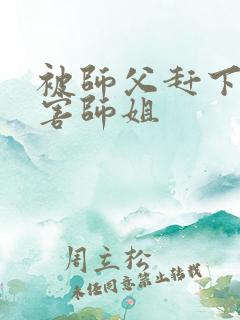 被師父赶下
害師姐
周立松
未经同意禁止转载